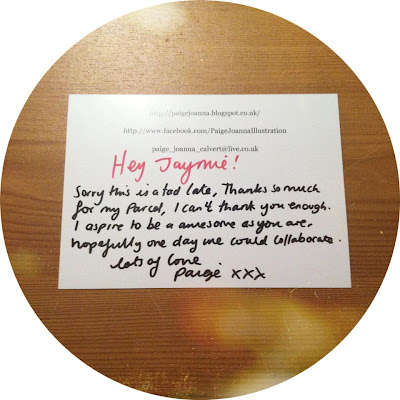 http://paigejoanna.blogspot.co.uk/
http://www.facebook.com/PaigeJoannaIllustration
paige_joanna_calvert@live.co.uk
Hey Jaymie!
Sorry this is a tad late, Thanks so much
for my Parcel, I can't thank you enough.
I aspire to be a awesome as you are,
hopefully one day we could collaborate.
lots of love
Paige xxx